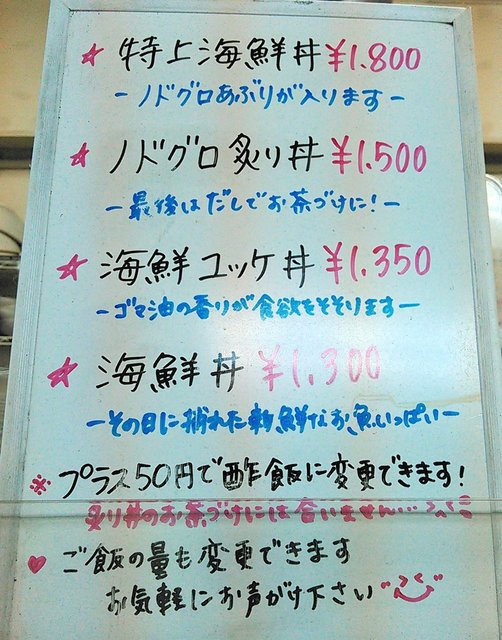 ☆ 特上海鮮丼 ¥1.800
－ノドグロあぶりが入ります－
☆ ノドグロ炙り丼 ¥1.500
－最後はだしでお茶づけに！－
☆ 海鮮ユッケ丼 ¥1.350
－ゴマ油の香りが食欲をそそります－
☆ 海鮮丼 ¥1.300
－その日に捕れた新鮮なお魚いっぱい－
※ プラス50円で酢飯に変更できます！
炙り丼のお茶づけには合いません…
♡ ご飯の量も変更できます
お気軽にお声がけ下さい